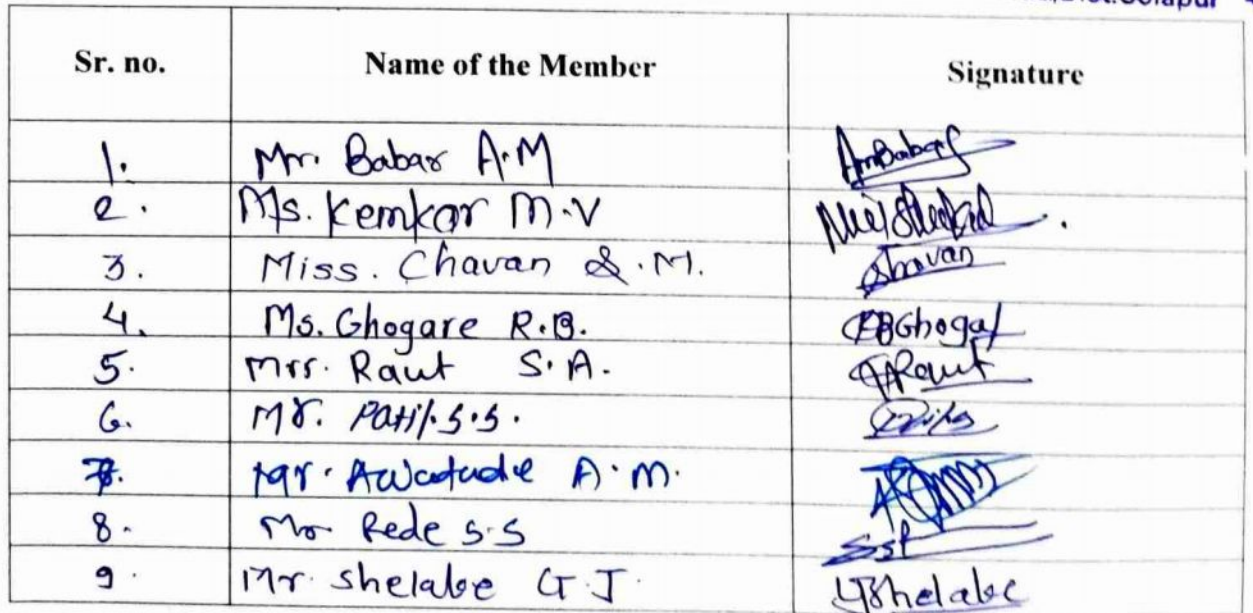 Dist.Solapur
Sr. no. Name of the Member Signature
1. Mr. Babar A.M AmBabar
2. Ms. Kemkar M.V
3. Miss. Chavan S.M. Chavan
4. Ms. Ghogare R.B. RBGhogar
5. Mrs. Raut S.A. SARaut
6. Mr. Patil.S.S.
7. Mr. Awatade A.M.
8. Mr Rede S.S SSR
9. Mr. Shelake G.J. GJShelake